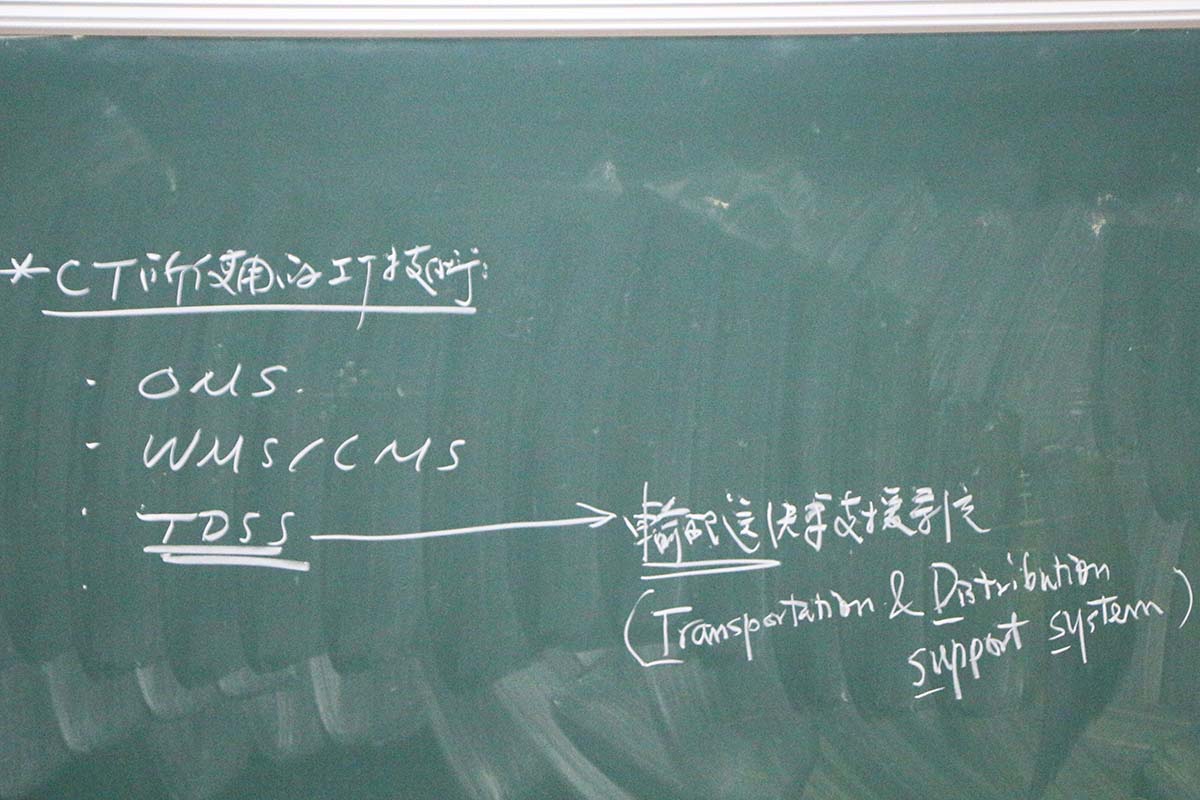 *CT所使用的IT技術:
· OMS.
· WMS/CMS
· TDSS → 輸配送決策支援系統
(Transportation & Distribution
support system)